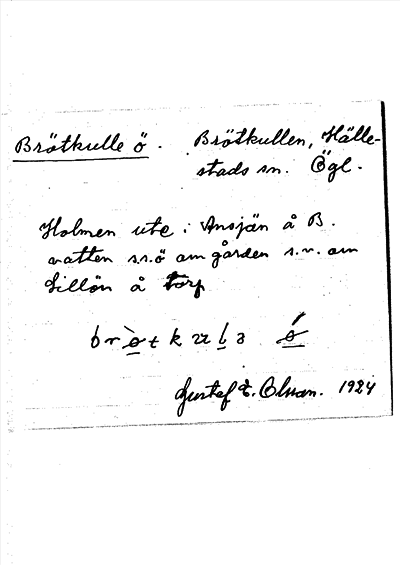 Brötkulle ö. Brötkullen, Hälle-
stads sn. Ögl.
Holmen ute i Ansjän å B.
vatten s.s.ö om gården s.v. om
Lillön å Torp
Gustef E. Olsson. 1924